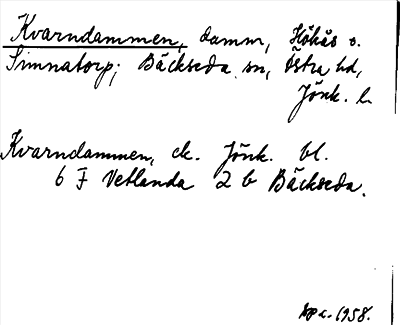 Kvarndammen, damm, Hökås o.
Simnatorp; Bäckseda sn, Östra hd,
Jönk. l.
Kvarndammen, ek. Jönk. bl.
6 F Vetlanda 2 b Bäckseda.
1958.